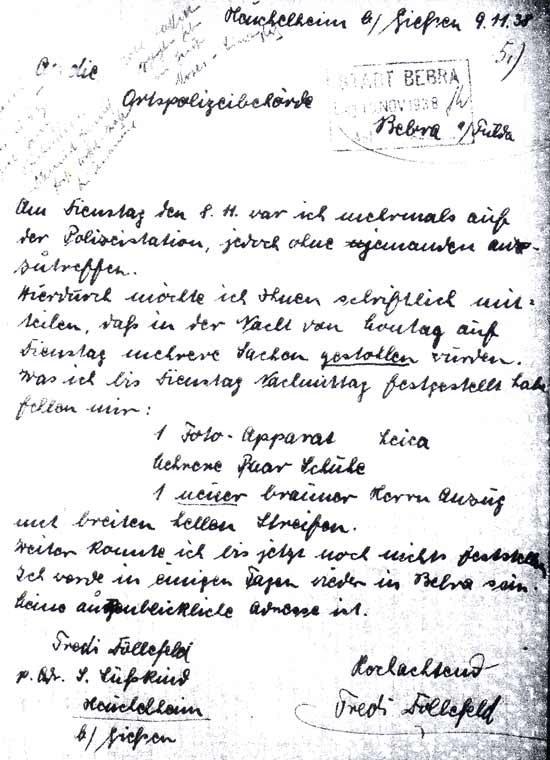 Heuchelheim b/ Giessen 9.11.38
5.)
An die
Ortspolizeibehörde
STADT BEBRA
NOV 1938
Bebra a/Fulda
Am Dienstag den 8. 11. war ich mehrmals auf
der Polizeistation, jedoch ohne jemanden an-
zutreffen.
Hierdurch möchte ich Ihnen schriftlich mit-
teilen, daß in der Nacht von Montag auf
Dienstag mehrere Sachen gestohlen wurden.
Was ich bis Dienstag Nachmittag festgestellt habe
fehlen mir:
1 Foto-Apparat Leica
Mehrere Paar Schuhe
1 neuer brauner Herrn Anzug
mit breiten hellen Streifen.
Weiter konnte ich bis jetzt noch nichts feststellen
Ich werde in einigen Tagen wieder in Bebra sein.
Meine augenblickliche Adresse ist.
Fredi Döllefeld
p. Adr. S. Süßkind
Heuchelheim
b/ Giessen
Hochachtend
Fredi Döllefeld